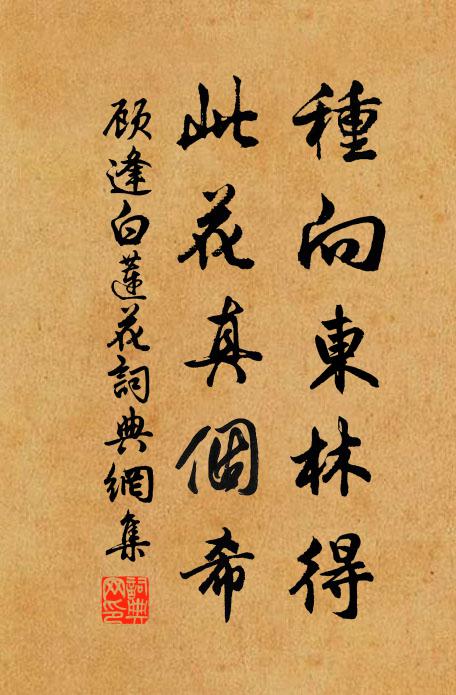 種向東林得
此花真個希
顾逢白蓮花詞典網集
詞典
网印